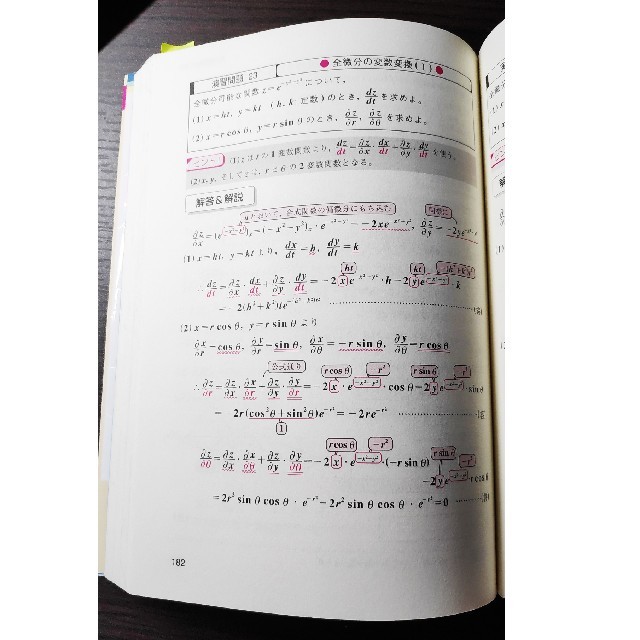 演習問題 23
● 全微分の変数変換(1) ●
全微分可能な関数 z=e^{-x²-y²} について,
(1) x=ht, y=kt (h, k: 定数) のとき, dz/dt を求めよ。
(2) x=r cos θ, y=r sin θ のとき, ∂z/∂r, ∂z/∂θ を求めよ。
(1) z は t の1変数関数より, dz/dt=∂z/∂x·dx/dt+∂z/∂y·dy/dt を使う。
(2) x, y, そして z は, r と θ の2変数関数となる。
解答&解説
合成関数の偏微分にもち込む
∂z/∂x=(e^{-x²-y²})ₓ=(-x²-y²)ₓ·e^{-x²-y²}=-2xe^{-x²-y²}, ∂z/∂y=-2ye^{-x²-y²}
(1) x=ht, y=kt より, dx/dt=h, dy/dt=k
ht kt
∴ dz/dt=∂z/∂x·dx/dt+∂z/∂y·dy/dt=-2x e^{-x²-y²}·h-2y e^{-x²-y²}·k
=-2(h²+k²)te^{-(h²+k²)t²} ……(答)
(2) x=r cos θ, y=r sin θ より
∂x/∂r=cos θ, ∂y/∂r=sin θ, ∂x/∂θ=-r sin θ, ∂y/∂θ=r cos θ
公式通り r cos θ -r² r sin θ -r²
∴ ∂z/∂r=∂z/∂x·∂x/∂r+∂z/∂y·∂y/∂r=-2x·e^{-x²-y²}·cos θ-2y e^{-x²-y²}·sin θ
=-2r(cos²θ+sin²θ)e^{-r²}=-2re^{-r²} ……(答)
1
r cos θ -r² r sin θ -r²
∂z/∂θ=∂z/∂x·∂x/∂θ+∂z/∂y·∂y/∂θ=-2x·e^{-x²-y²}·(-r sin θ)
-2y e^{-x²-y²}·r cos θ
=2r² sin θ cos θ·e^{-r²}-2r² sin θ cos θ·e^{-r²}=0 ……(答)
182